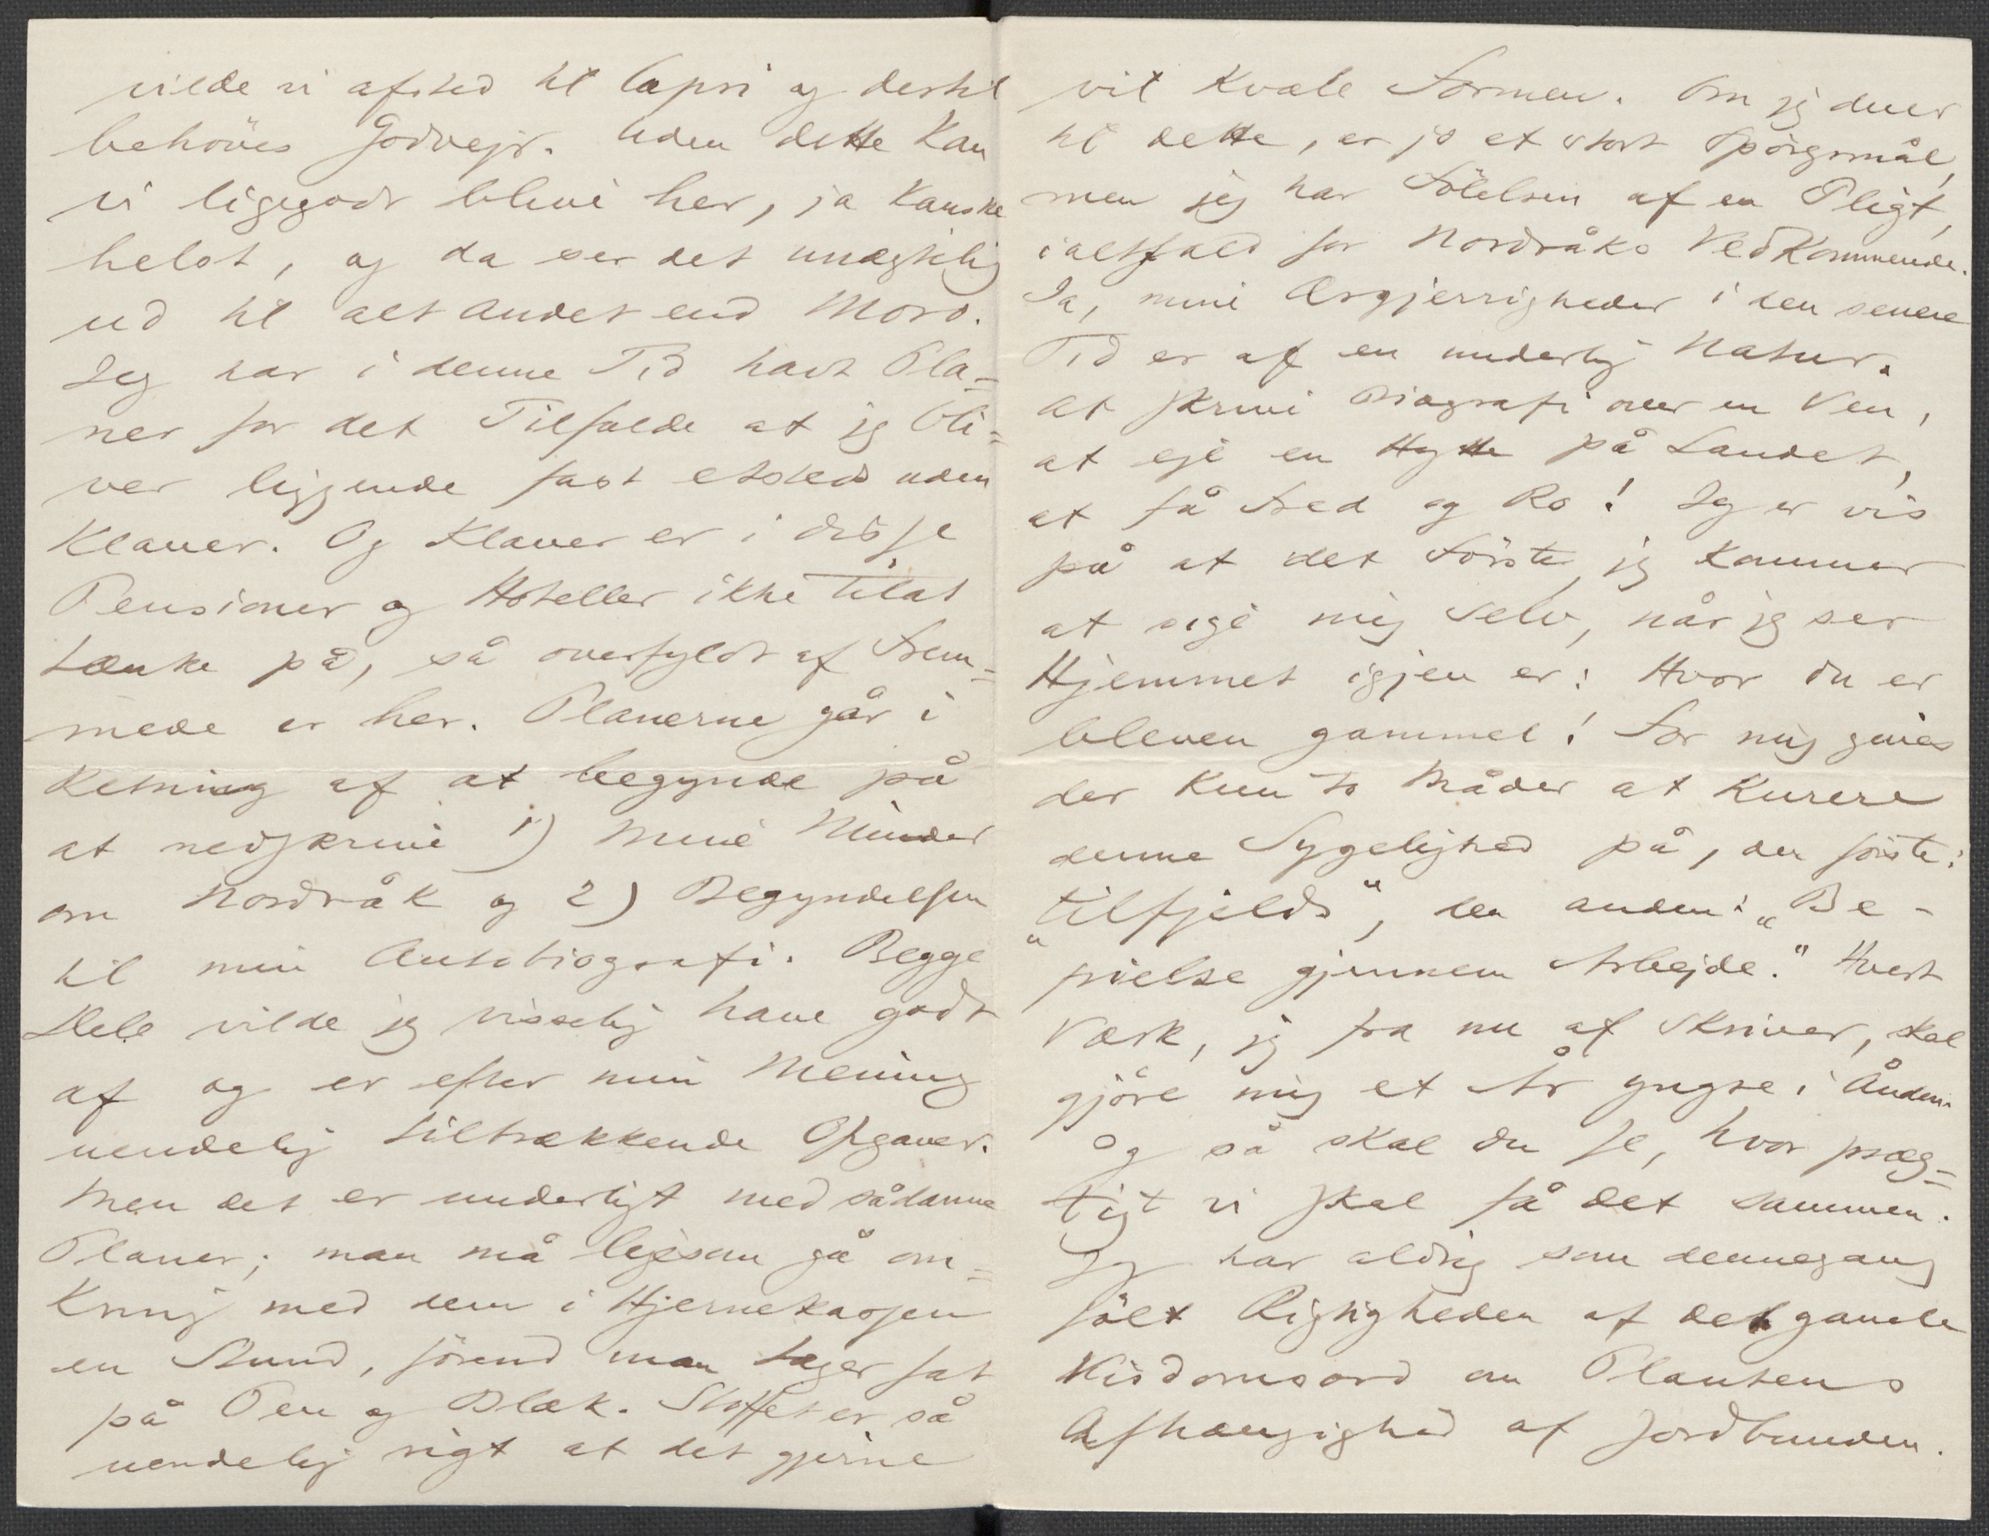 vilde vi afsted til Capri og dertil
behöves Godvejr. Uden dette kan
vi ligegodt blive her, ja kanske
helst, og da ser det unægtelig
ud til alt andet end Moro.
Jeg har i denne Tid havt Pla=
ner for det Tilfælde at jeg bli=
ver liggende fast etsteds uden
Klaver. Og Klaver er i disse
Pensioner og Hoteller ikke til at
tænke på, så overfyldt af Frem=
mede er her. Planerne går i
Retning af at begynde på
at nedskrive 1) Mine Minder
om Nordråk og 2) Begyndelsen
til min Autobiografi. Begge
Dele vilde jeg visselig have godt
af og er efter min Mening
uendelig tiltrækkende Opgaver.
Men det er underligt med sådanne
Planer; man må ligesom gå om=
kring med dem i Hjernekassen
en Stund, förend man tager fat
på Pen og Blæk. Stoffet er så
uendelig rigt at det gjerne
vil kvæle Formen. Om jeg duer
til dette, er jo et stort Spörgsmål,
men jeg har Fölelsen af en Pligt,
ialtfald for Nordråks Vedkommende.
Ja, mine Ærgjerrigheder i den senere
Tid er af en underlig Natur.
At skrive Biografi over en Ven,
at eje en Hytte på Landet,
at få Fred og Ro! Jeg er vis
på at det Förste, jeg kommer
at sige mig selv, når jeg ser
Hjemmet igjen er: Hvor du er
bleven gammel! For mig gives
der kun to Måder at kurere
denne Sygelighed på, den förste:
„tilfjelds", den anden: „Be-
frielse gjennem Arbejde." Hvert
Værk, jeg fra nu af skriver, skal
gjöre mig et År yngre i Ånden.
Og så skal du se, hvor præg=
tigt vi skal få det sammen.
Jeg har aldrig som dennegang
fölt Rigtigheden af det gamle
Visdomsord om Plantens
Afhængighed af Jordbunden.